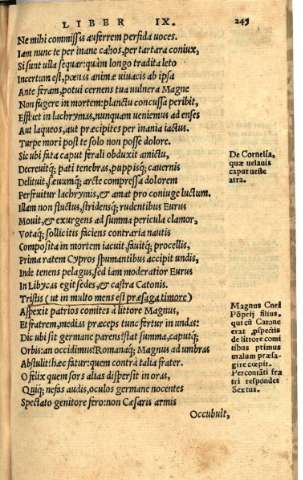 LIBER IX. 245
Ne mihi commissas auferrem perfida uoces.
Iam nunc te per inane cahos, per tartara coniux,
Si sunt ulla sequar: quàm longo tradita leto
Incertum est, pœnas animæ uiuacis ab ipsa
Ante feram, potui cernens tua uulnera Magne
Non fugere in mortem: planctu concussa peribit,
Effluet in lachrymas, nunquam ueniemus ad enses
Aut laqueos, aut præcipites per inania iactus.
Turpe mori post te solo non posse dolore.
Sic ubi fata caput ferali obduxit amictu,
Decreuitq; pati tenebras, puppisq; cauernis
Delituit, sæuumq; arcte compressa dolorem
Perfruitur lachrymis, & amat pro coniuge luctum.
Illam non fluctus, stridensq; rudentibus Eurus
Mouit, & exurgens ad summa pericula clamor,
Votaq; sollicitis faciens contraria nautis
Composita in mortem iacuit, fauitq; procellis.
Prima ratem Cypros spumantibus accipit undis,
Inde tenens pelagus, sed iam moderatior Eurus
In Libycas egit sedes, & castra Catonis.
Tristis (ut in multo mens est præsaga timore)
Aspexit patrios comites à littore Magnus,
Et fratrem, medias præceps tunc fertur in undas:
Dic ubi sit germane parens? stat summa, caputq;
Orbis: an occidimus? Romanaq; Magnus ad umbras
Abstulit? hæc fatur: quem contra talia frater.
O felix quem sors alias dispersit in oras,
Quiq; nefas audis, oculos germane nocentes
Spectato genitore fero: non Cæsaris armis
Occubuit,
De Cornelia,
quæ uelauit
caput ueste
atra.
Magnus Cneï
Põpeij filius,
qui cũ Catone
erat, pspectis
de littore comi
tibus primus
malum præsa-
gire cœpit.
Percontãti fra
tri respondet
Sextus.